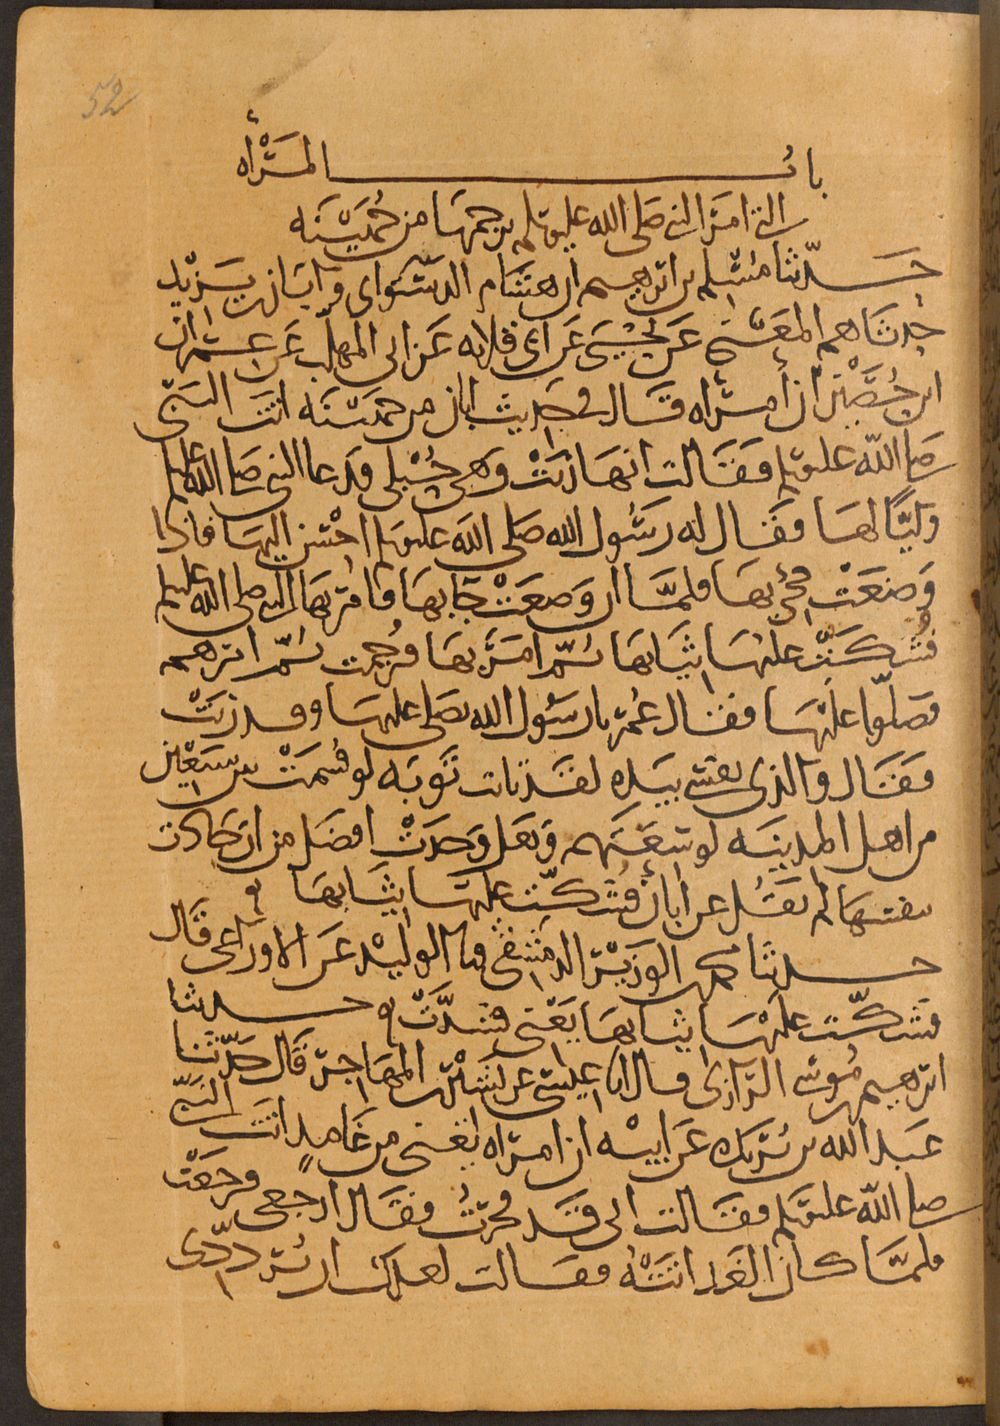 52
باب المرأة
التي امر النبي صلى الله عليه وسلم برجمها من جُهَيْنَه
حدثنا مسلم بن ابرهيم ان هشام الدستواى وابان بن يزيد
حدثاهم المعنى عن يحيى عن ابى قلابه عن ابى المهلب عن عمران
ابن حُصَيْن أن أمراه قال فى حديث ابان من جهينه اتت النبى
صلى الله عليه وسلم فقالت انها زنَتْ وهى حُبْلى فدعا النبى صلى الله عليه وسلم
وليًّا لها فقال له رسُول الله صلى الله عليه وسلم احْسِن اليها فاذا
وَضعَتْ فجئ بها فلمَّا ان وَضعَتْ جَا بها فامر بها النبى صلى الله عليه وسلم
فشُكَّتْ عليها ثيَابها ثمّ امَرَ بها فرُجمت ثمّ امرهم
فصلّوا علَيْها فقال عُمر يا رسُول الله تصلى عليها وقد زنتْ
فقال والذى نفسى بيَده لقد تابت توبَه لو قُسمَتْ بين سبعَيْن
من اهل المدينه لو سعَتهم وَهَل وَجدَتْ افضل من ان جادت
بنفسها لم يقُل عن ابان فشكّت عليها ثيَابها
حدثنا محمد بن الوزير الدمشقى نا الوليد عن الاوزاعى قال
فشكّت علَيْها ثيابها يَعْنى فشدَّتْ حدثنا
ابرهيم بن مُوسى الرازى قال انا عيسى عن بشير بن المهاجر قال حدّثنا
عبد الله بن بُريده عن ابيه ان امراه يعنى من غامدٍ اتت النبىّ
صلى الله عليه وسلم فقالت انى قد فجرتُ فقال ارجعى فرجعَتْ
فلمَّا كان الغد اتتْهُ فقالت لعلك ان تردّدنى